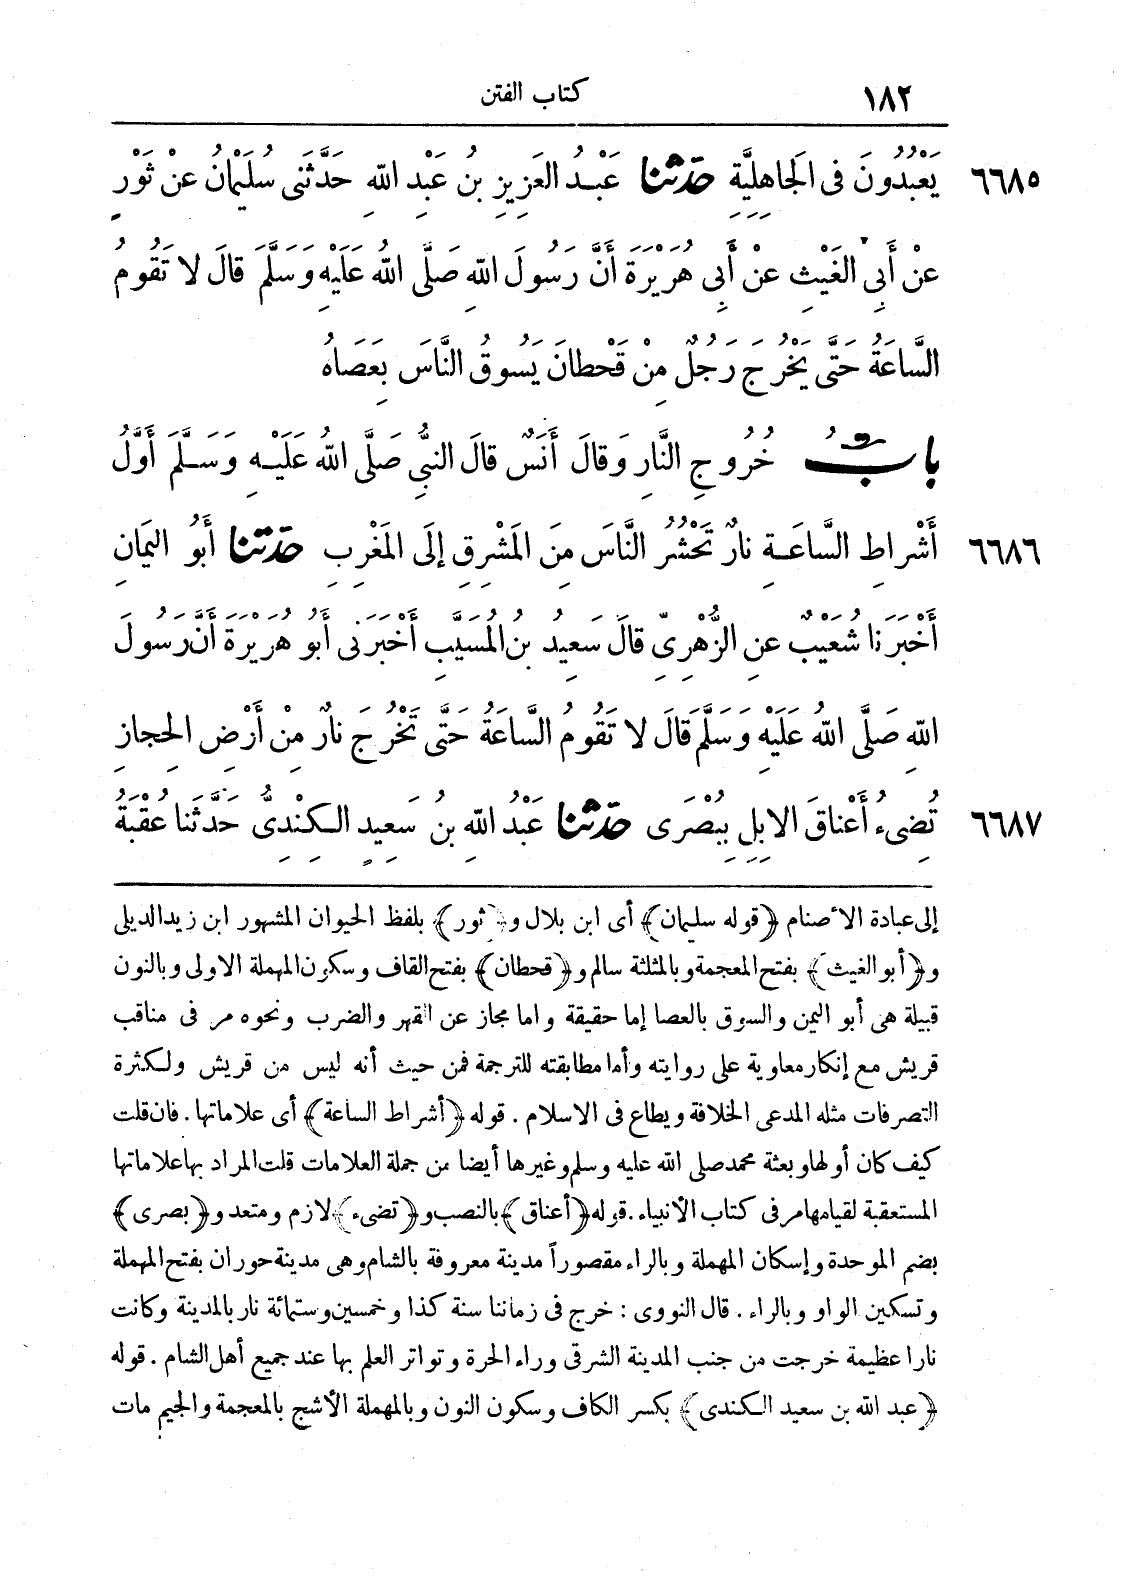 ١٨٢ كتاب الفتن
٦٦٨٥ يَعْبُدُونَ فى الجَاهِليَّةِ حَدَّثَنَا عَبْدُ العَزِيزِ بنُ عَبْدِ اللهِ حَدَّثَنى سُلَيْمَانُ عنْ ثَوْرٍ
عنْ أَبِى الغَيْثِ عنْ أَبِى هُرَيْرَةَ أَنَّ رَسُولَ اللهِ صَلَّى اللهُ عَلَيْهِ وَسَلَّمَ قالَ لا تَقُومُ
السَّاعَةُ حَتَّى يَخْرُجَ رَجُلٌ مِنْ قَحْطانَ يَسُوقُ النَّاسَ بِعَصَاهُ
بابُ خُرُوجِ النَّارِ وَقالَ أَنَسٌ قالَ النبىُّ صَلَّى اللهُ عَلَيْهِ وَسَلَّمَ أَوَّلُ
٦٦٨٦ أَشْراطِ السَّاعَةِ نارٌ تَحْشُرُ النَّاسَ مِنَ المَشْرِقِ إلَى المَغْرِبِ حَدَّثَنَا أَبُو اليَمَانِ
أَخْبَرَنا شُعَيْبٌ عنِ الزُّهْرِىِّ قالَ سَعِيدُ بنُ المُسَيَّبِ أَخْبَرَنى أَبُو هُرَيْرَةَ أَنَّ رَسُولَ
اللهِ صَلَّى اللهُ عَلَيْهِ وَسَلَّمَ قَالَ لا تَقُومُ السَّاعَةُ حَتَّى تَخْرُجَ نارٌ مِنْ أَرْضِ الحِجازِ
٦٦٨٧ تُضِىءُ أَعْناقَ الابِلِ بِبُصْرَى حَدَّثَنَا عَبْدُ اللهِ بنُ سَعِيدٍ الكِنْدِىُّ حَدَّثَنا عُقْبَةُ
إلى عبادة الأصنام ﴿قوله سليمان﴾ أى ابن بلال و﴿ثور﴾ بلفظ الحيوان المشهور ابن زيد الديلى
و﴿أبو الغيث﴾ بفتح المعجمة وبالمثلثة سالم و﴿قحطان﴾ بفتح القاف وسكون المهملة الاولى وبالنون
قبيلة هى أبو اليمن والسوق بالعصا إما حقيقة واما مجاز عن القهر والضرب ونحوه مر فى مناقب
قريش مع إنكار معاوية على روايته وأما مطابقته للترجمة فمن حيث أنه ليس من قريش ولكثرة
التصرفات مثله المدعى الخلافة ويطاع فى الاسلام . قوله ﴿أشراط الساعة﴾ أى علاماتها . فان قلت
كيف كان أولها وبعثة محمد صلى الله عليه وسلم وغيرها أيضا من جملة العلامات قلت المراد بها علاماتها
المستعقبة لقيامها مر فى كتاب الأنبياء . قوله ﴿أعناق﴾ بالنصب و﴿تضىء﴾ لازم ومتعد و﴿بصرى﴾
بضم الموحدة وإسكان المهملة وبالراء مقصوراً مدينة معروفة بالشام وهى مدينة حوران بفتح المهملة
وتسكين الواو وبالراء . قال النووى : خرج فى زماننا سنة كذا وخمسين وستمائة نار بالمدينة وكانت
نارا عظيمة خرجت من جنب المدينة الشرقى وراء الحرة وتواتر العلم بها عند جميع أهل الشام . قوله
﴿عبد الله بن سعيد الكندى﴾ بكسر الكاف وسكون النون وبالمهملة الأشج بالمعجمة والجيم مات